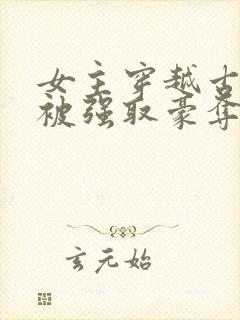 女主穿越古
被强取豪夺
玄元始